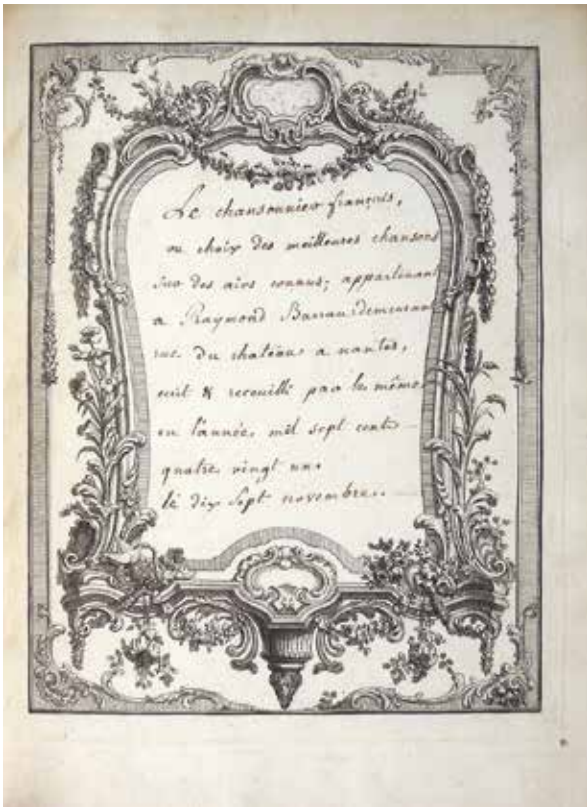 Le chansonnier françois,
ou choix des meilleures chansons
sur des airs connus; appartenant
a Raymond Barrau demeurant
rue du chateau a nantes,
ecrit & recueilli par le même
en l'année mil sept cent
quatre vingt un.
le dix sept novembre..